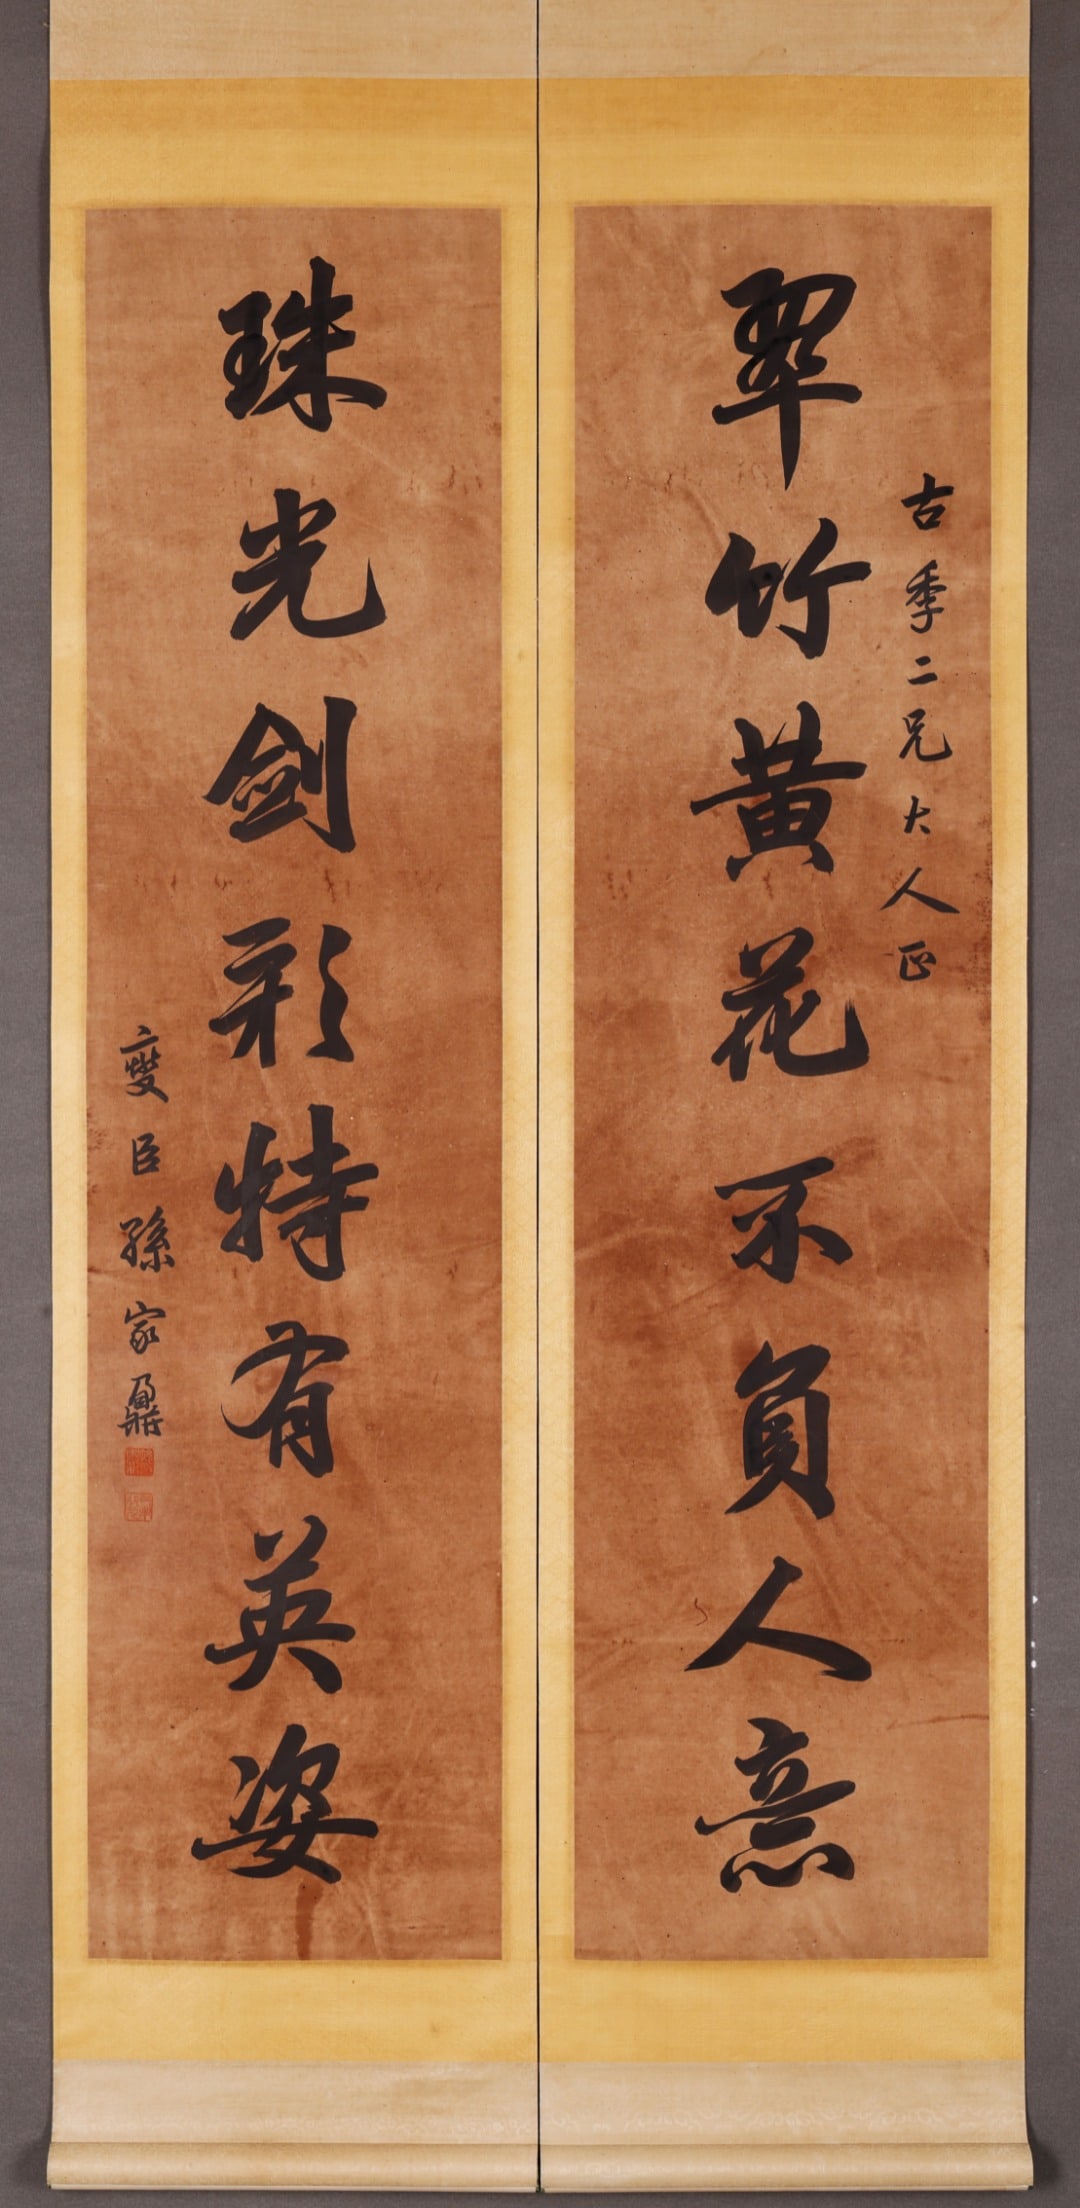 古季二兄大人正
翠竹黄花不負人意
珠光劍彩特有英姿
燮臣孫家鼐